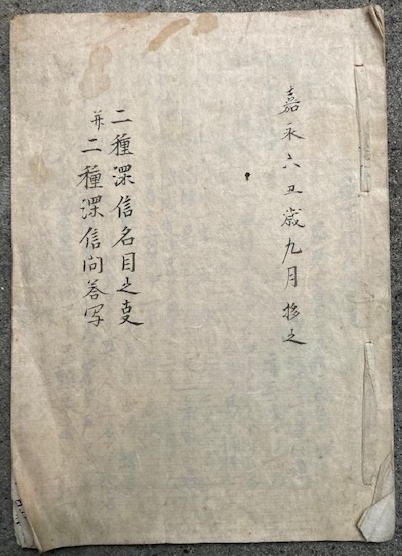 嘉永六丑歳九月拶之
二種深信名目之㕝
并二種深信問答写